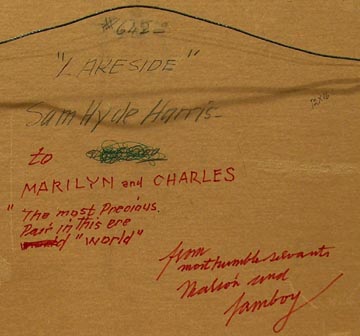 #642
"LAKESIDE"
Sam Hyde Harris-
12x16
to
MARILYN and CHARLES
"The most Precious
Pair in this ere
"World"
from
most humble servants
and
Jamboy